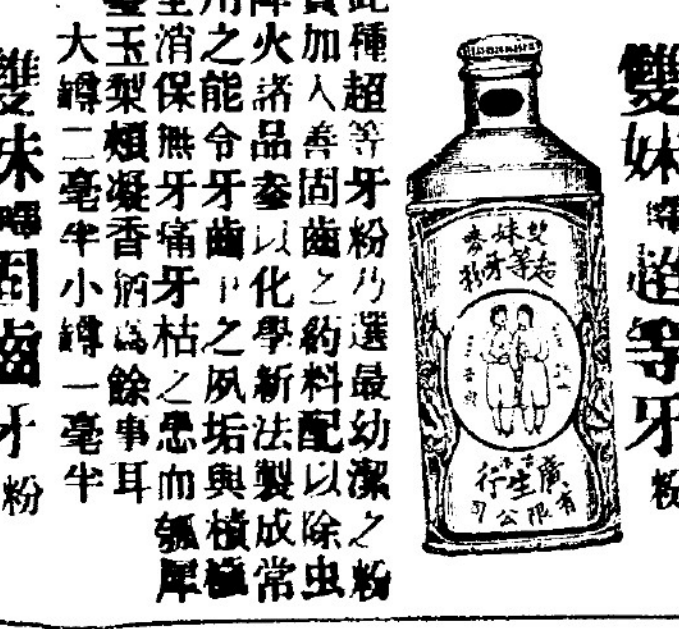 雙妹嚜超等牙粉
雙妹嚜
超等牙粉
廣生行
有限公司
此種超等牙粉乃選最幼潔之粉
質加入善固齒之葯料配以除虫
降火諸品叅以化學新法製成常
用之能令牙齒中之夙垢與積穢
全消保無牙痛牙枯之患而瓠犀
玉梨頰凝香猶爲餘事耳
大罇二毫半小罇一毫半
雙妹嚜固齒牙粉